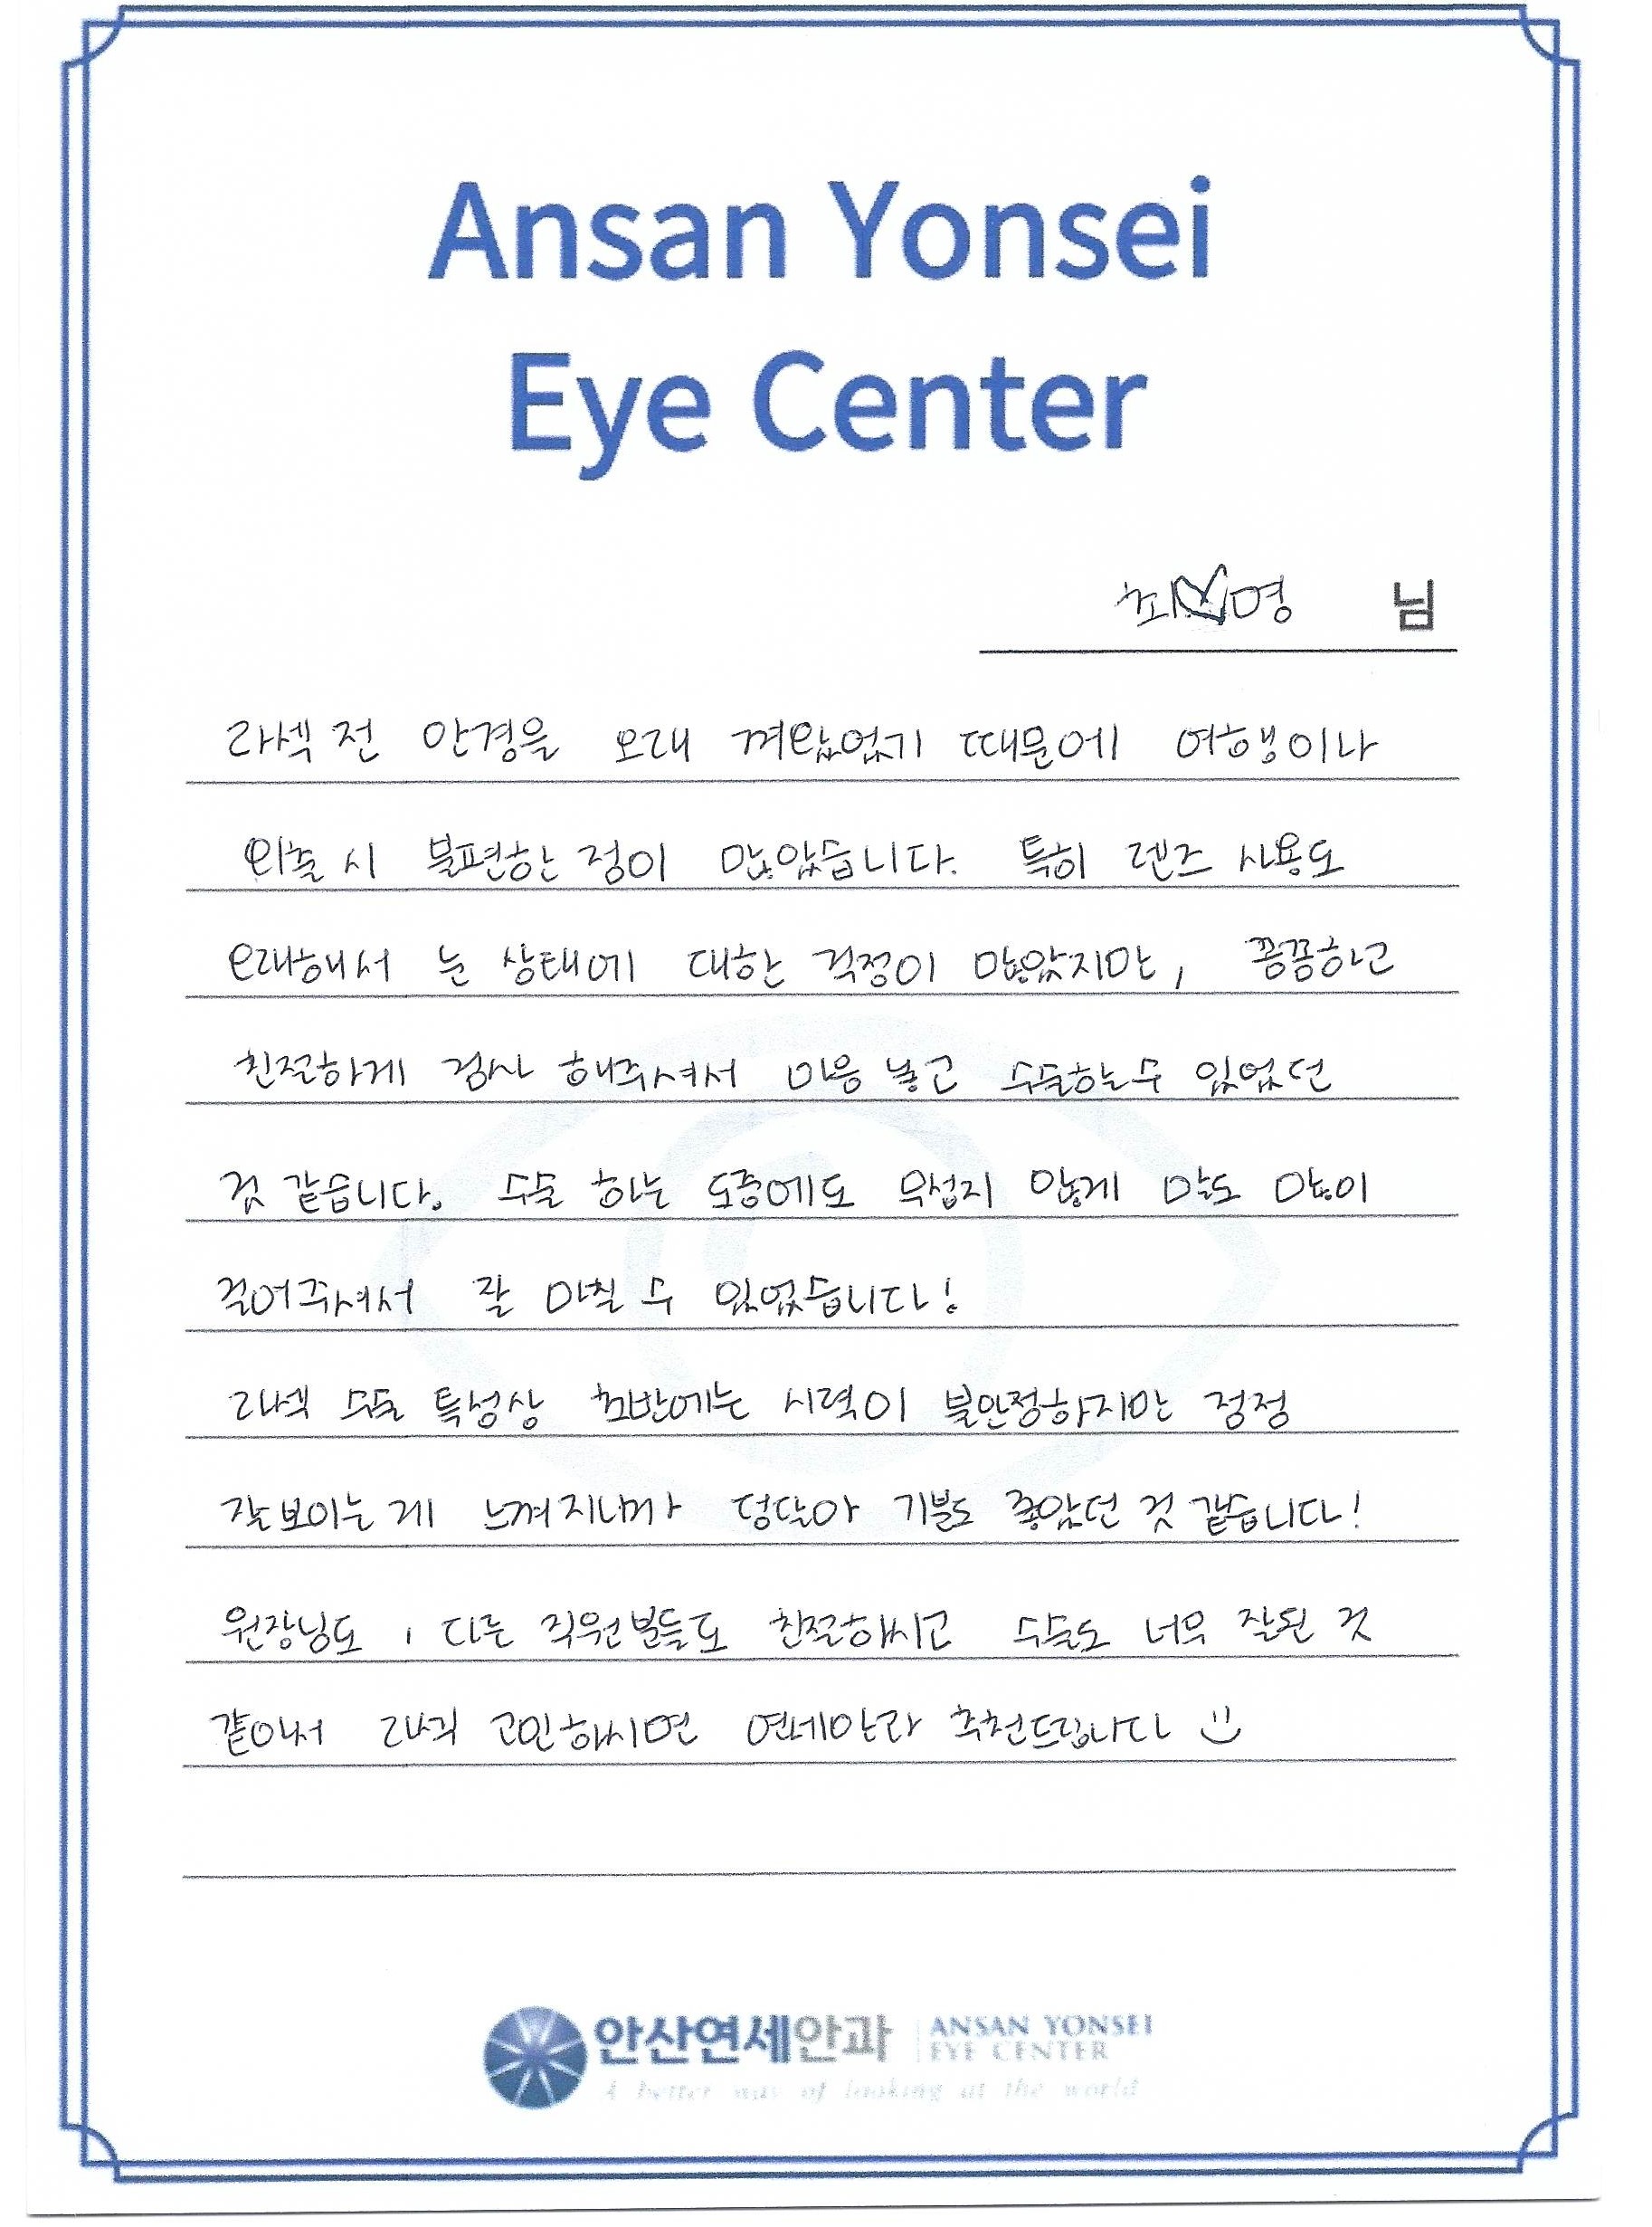 Ansan Yonsei
Eye Center
최♡영 님
라섹 전 안경을 오래 껴왔었기 때문에 여행이나
외출 시 불편한 점이 많았습니다. 특히 렌즈 사용도
오래해서 눈 상태에 대한 걱정이 많았지만, 꼼꼼하고
친절하게 검사 해주셔서 마음 놓고 수술할 수 있었던
것 같습니다. 수술 하는 도중에도 무섭지 않게 말도 많이
걸어주셔서 잘 마칠 수 있었습니다!
라섹 수술 특성상 초반에는 시력이 불안정하지만 점점
잘 보이는 게 느껴지니까 덩달아 기분도 좋았던 것 같습니다!
원장님도, 다른 직원분들도 친절하시고 수술도 너무 잘된 것
같아서 라식 고민하시면 연세안과 추천드립니다 :)
안산연세안과 ANSAN YONSEI
EYE CENTER
A better way of looking at the world